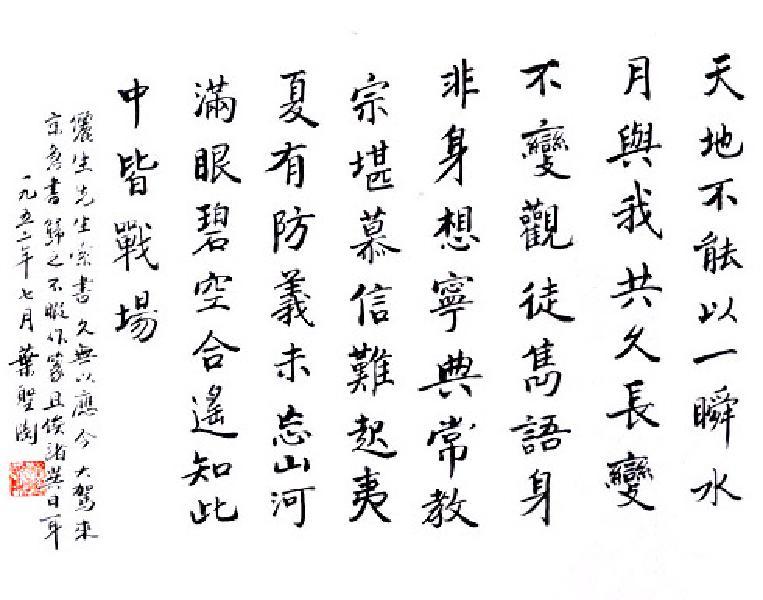 天地不能以一瞬水
月與我共久長變
不變觀徒雋語身
非身想寧典常教
宗堪慕信難起夷
夏有防義未忘山河
滿眼碧空合遙知此
中皆戰場
儷生先生索書久無以應今大駕來
京書歸之不暇作篆且俟諸異日耳
一九五年七月葉聖陶